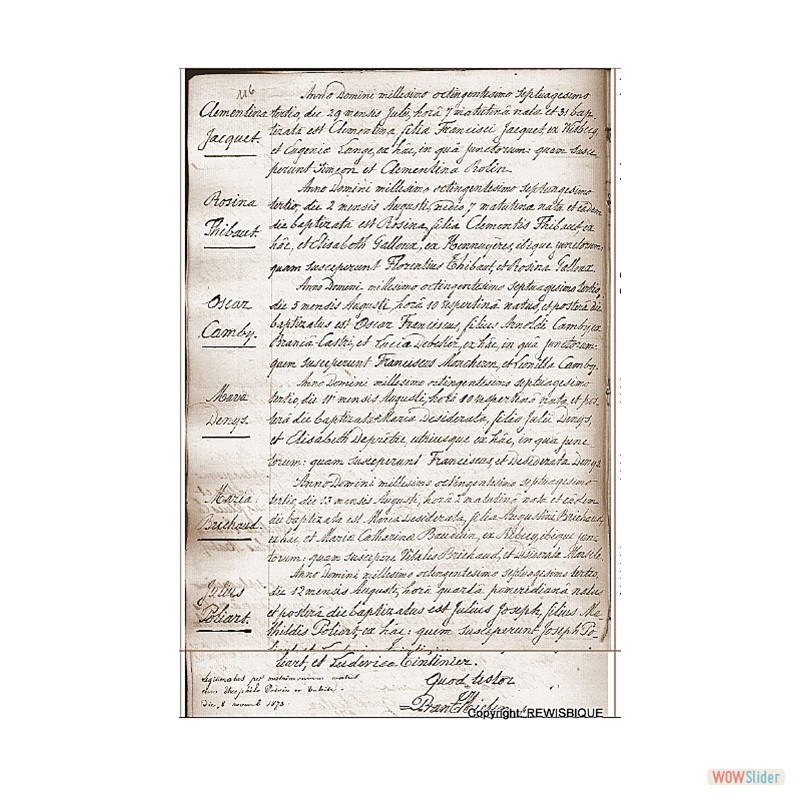 116
Clementina
Jacquet.
Anno Domini millesimo octingentesimo septuagesimo
tertio, die 29 mensis Julii, horâ 7 matutinâ nata et 31 bap
tizata est Clementina filia Francisci Jacquet, ex
et Eugeniæ Lange, ex hâc, in quâ junctorum: quam susce
perunt Simeon et Clementina Rolin.
Rosina
Thibaut.
Anno Domini millesimo octingentesimo septuagesimo
tertio, die 2 mensis Augusti, 7 matutina nata et eadem
die baptizata est Rosina, filia Clementis Thibaut ex
hâc, et Elisabeth Gallonx, ex Hennuyeres, ibique junctorum:
quam susceperunt Florentius Thibaut, et Rosina Gallonx.
Oscar
Camby.
Anno Domini millesimo octingentesimo septuagesimo tertio,
die 5 mensis Augusti, horâ 10 vespertinâ natus, et posterâ die
baptizatus est Oscar Franciscus, filius Arnoldi Camby, ex
et Lucia Debelier, ex hâc, in quâ junctorum:
quem susceperunt Franciscus et Camby.
Maria
Denys.
Anno Domini millesimo octingentesimo septuagesimo
tertio, die 11 mensis Augusti, horâ 10 vespertinâ nata, et pos
terâ die baptizata Maria Desiderata, filia Julii Denys,
et Elisabeth Deprêtre, utriusque ex hâc, in quâ junc
torum: quam susceperunt Franciscus, et Desiderata Denys.
Maria
Brichaud.
Anno Domini millesimo octingentesimo septuagesimo
tertio, die 13 mensis Augusti, horâ 2 matutinâ nata et eadem
die baptizata est Maria Desiderata, filia Augustini Brichaud,
ex hâc, et Maria Catharina ex Rebecq, ibique junc
torum: quam suscepere Vitalis Brichaud, et Desiderata
Julius
Poliart.
Anno Domini millesimo octingentesimo septuagesimo tertio,
die 12 mensis Augusti, horâ quartâ pomeridianâ natus
et posterâ die baptizatus est Julius Joseph, filius Ma
thildis Poliart, ex hâc: quem susceperunt Joseph Po
liart, et Ludovica Tintinier.
Legitimatus per matrimonium matris
cum
Die 8 novemb 1873
Quod testor
Copyright: REWISBIQUE
WOWSlider